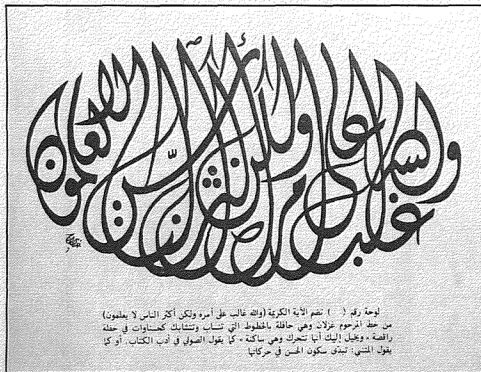 والله غالب على أمره ولكن أكثر الناس لا يعلمون
لوحة رقم ( ) تضم الآية الكريمة (والله غالب على أمره ولكن أكثر الناس لا يعلمون)
من خط المرحوم غزلان وهي حافلة بالخطوط التي تنساب وتتشابك كغـاوات في حفلة
راقصة - ويخيل إليك أنها تتحرك وهي ساكنة - كما يقول الصولي في أدب الكتاب. أو كما
يقول المتنبي: تبدي سكون الحسن في حركاتها